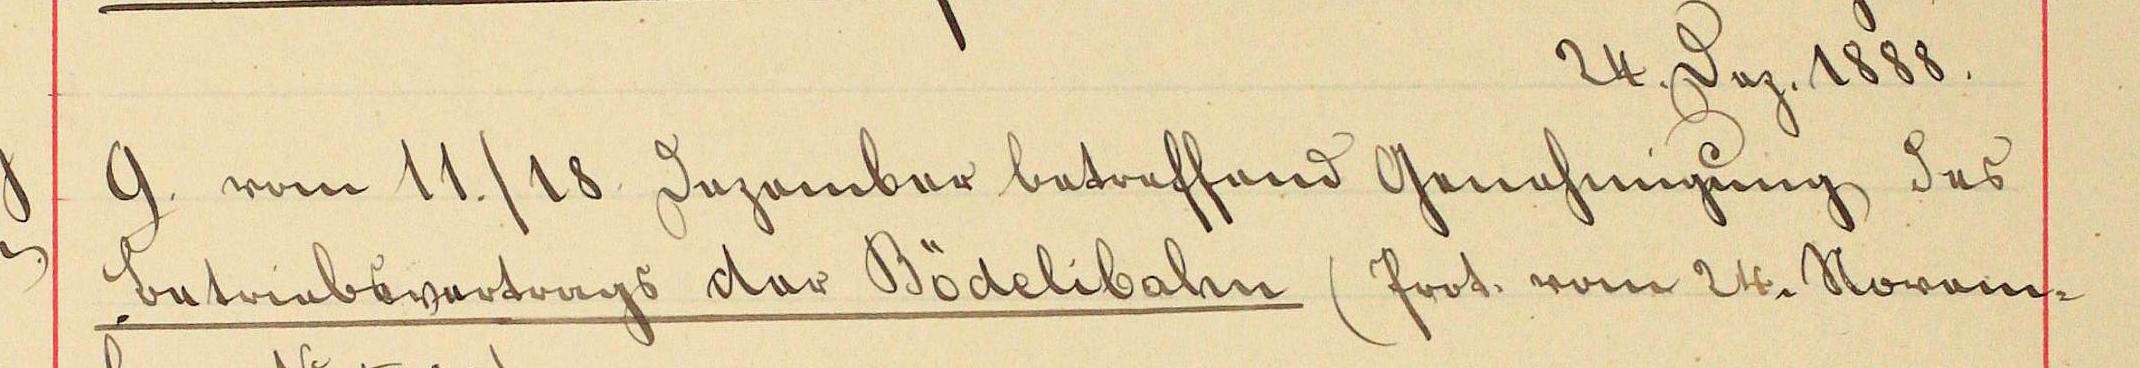 24. Dez. 1888.
9. vom 11./18. Dezember betreffend Genehmigung des
Betriebsvertrags der Bödelibahn (Prot. vom 24. Novem-